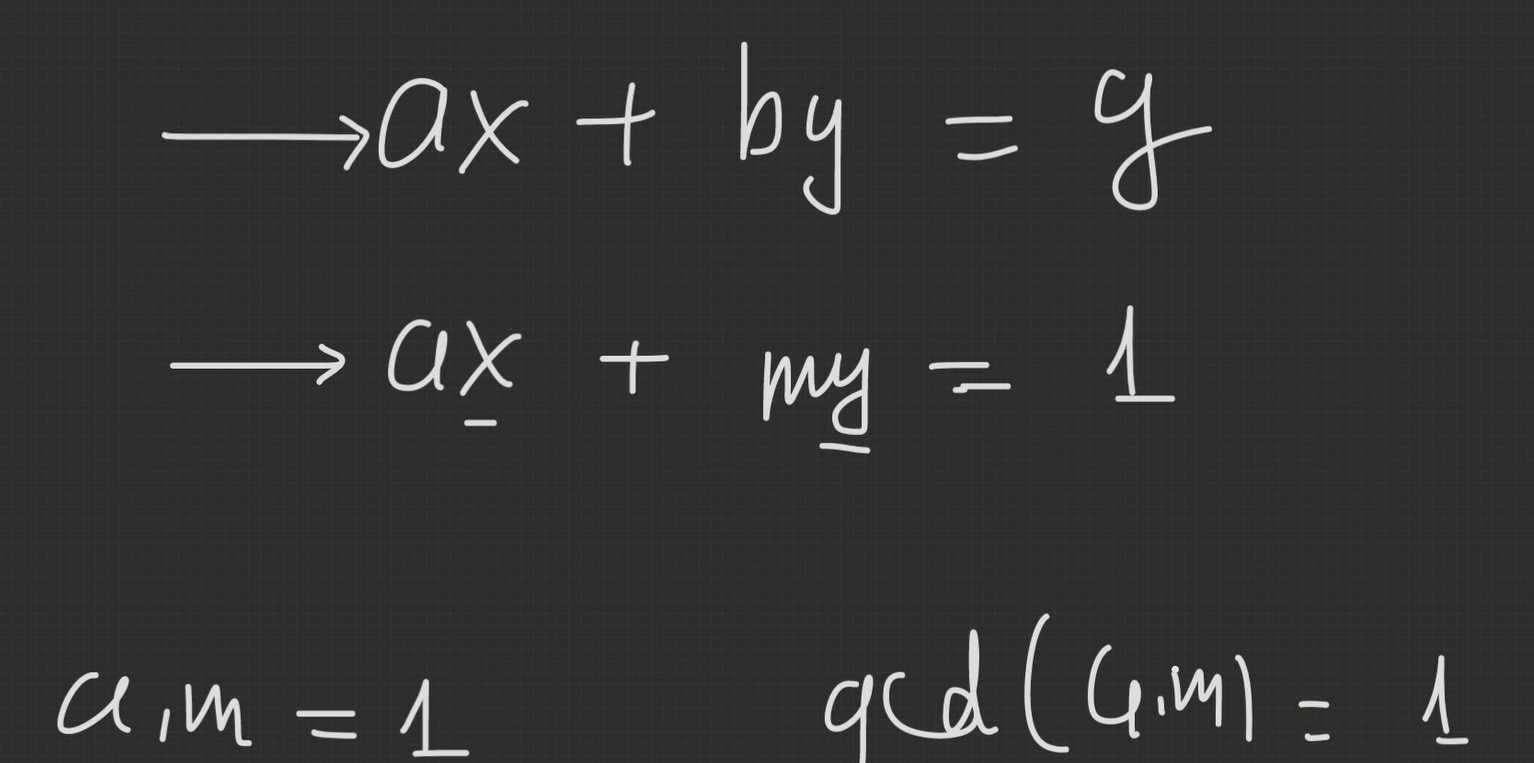 → ax + by = g
→ ax + my = 1
a, m = 1 gcd(a, m) = 1